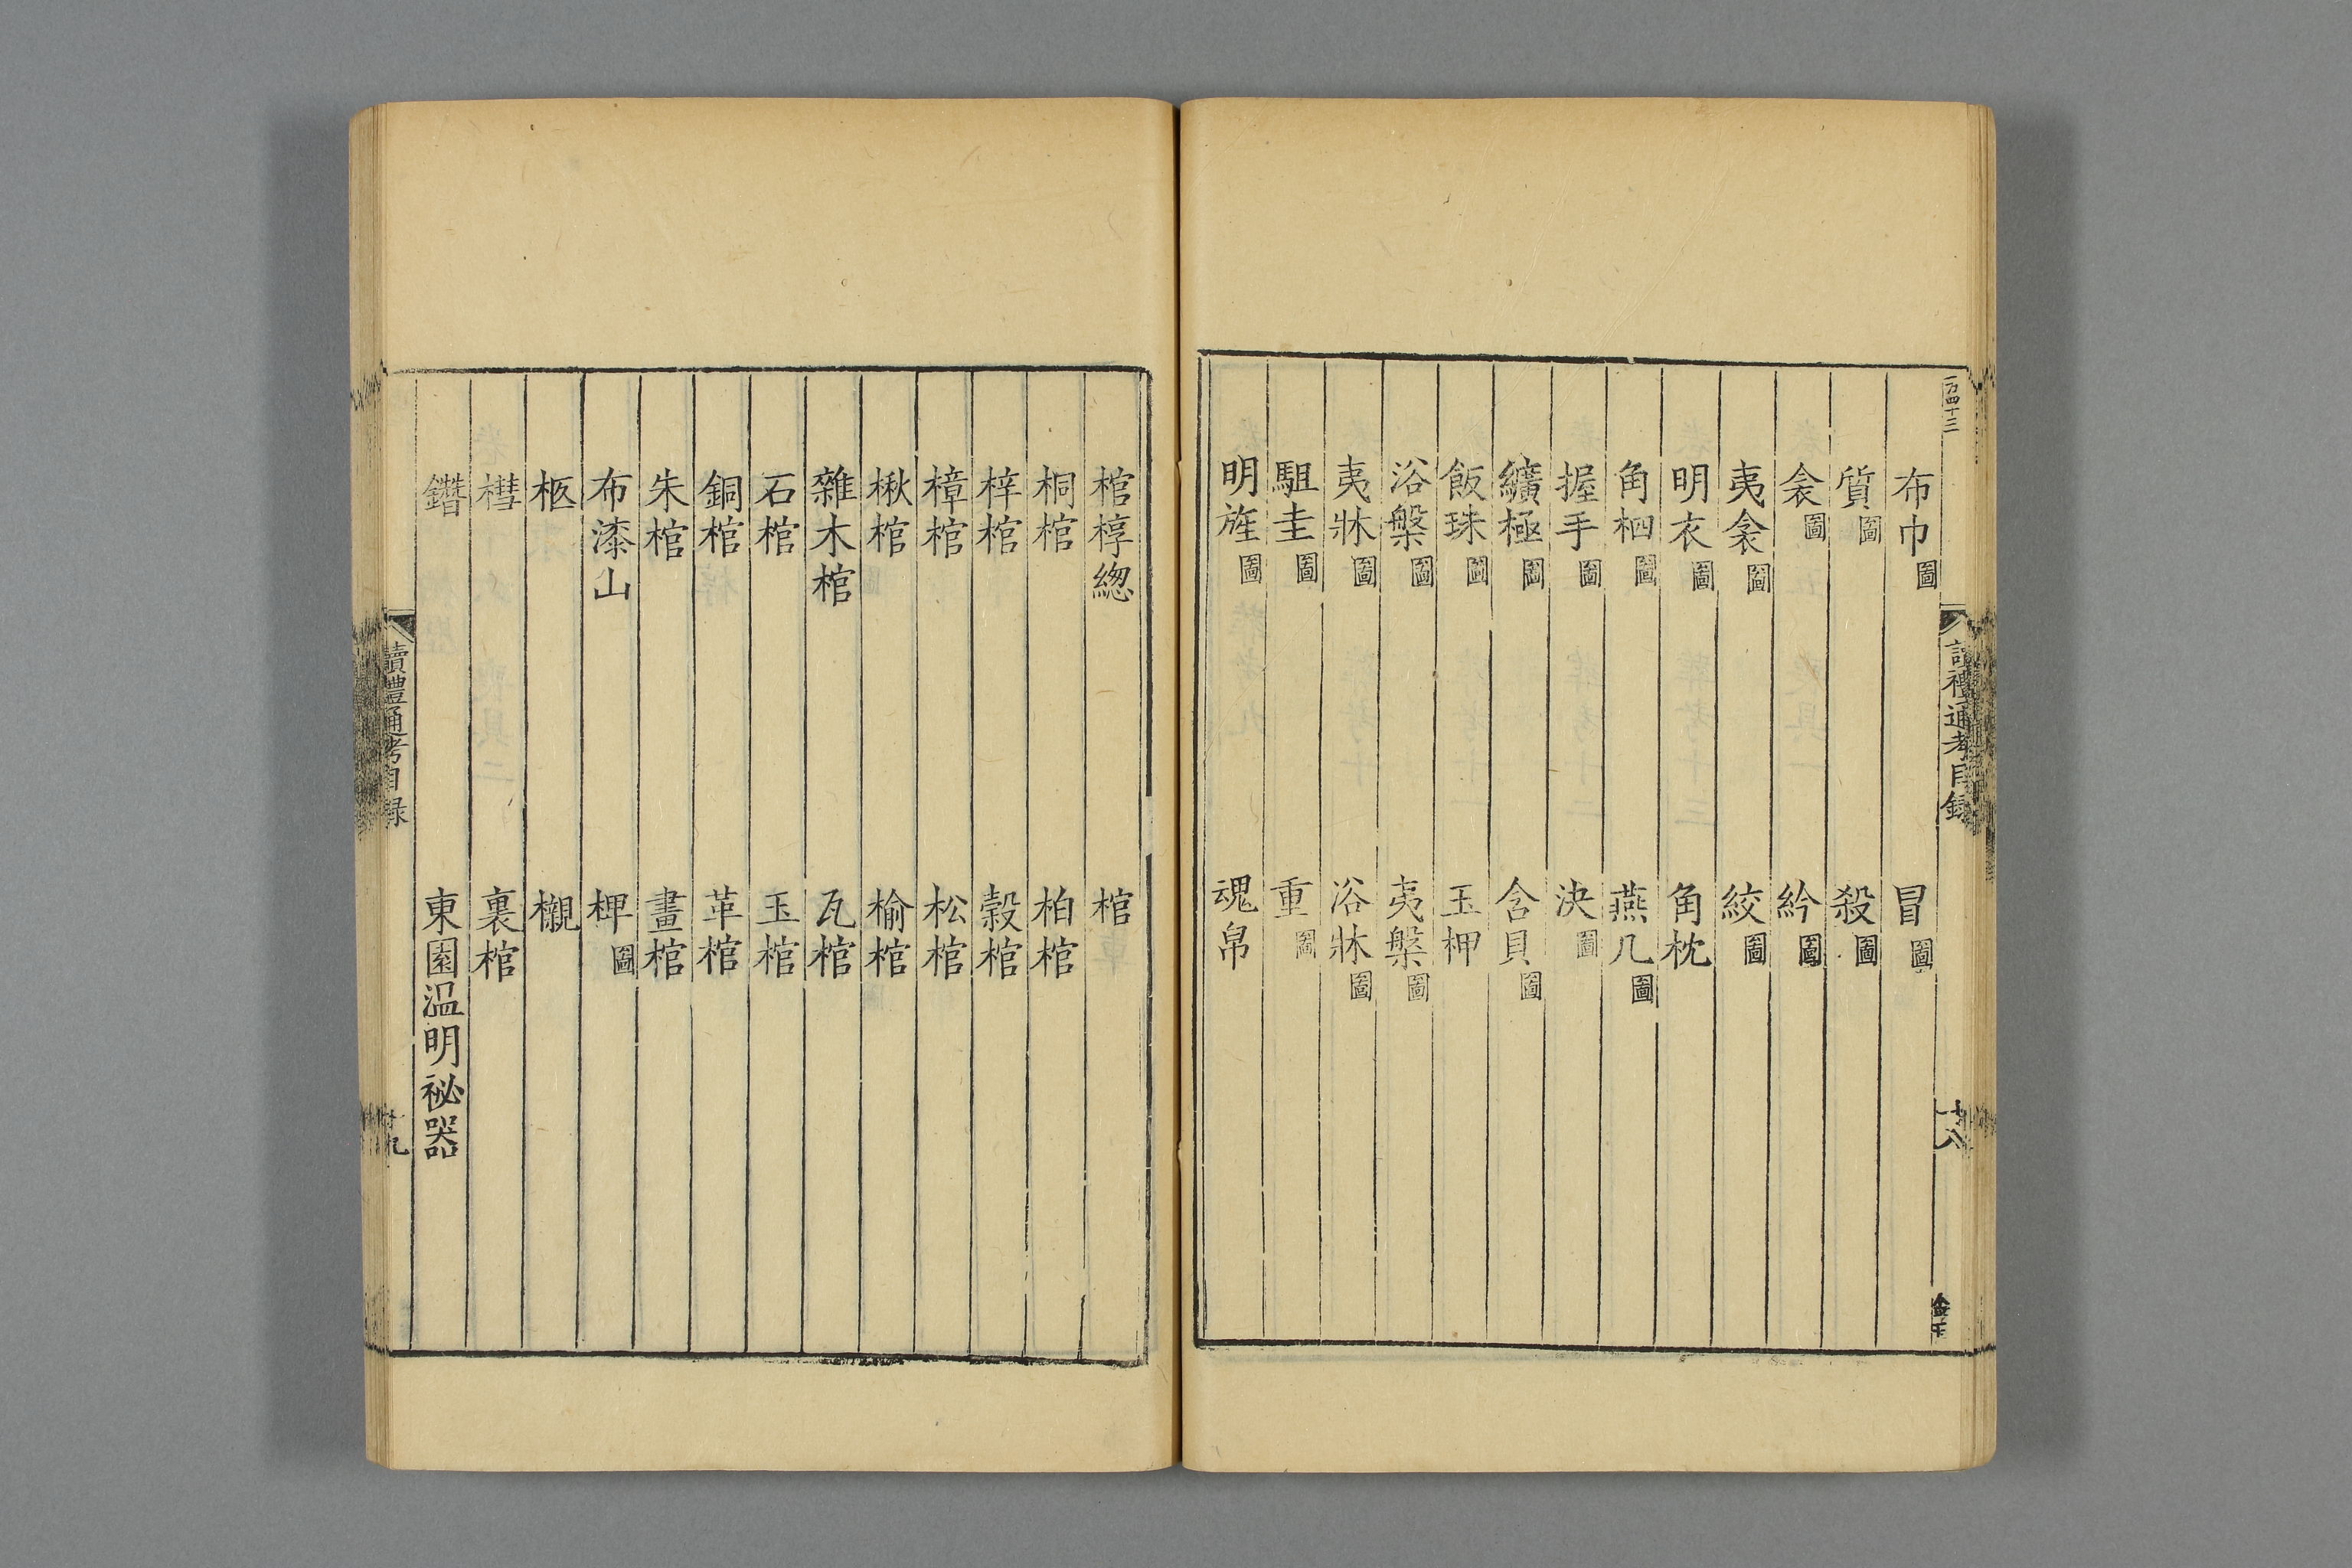 一百四十三
讀禮通考目錄
十八
布巾圖 冒圖
質圖 殺圖
衾圖 紟圖
夷衾圖 絞圖
明衣圖 角枕
角柶圖 燕几圖
握手圖 決圖
纊極圖 含貝圖
飯珠圖 玉柙
浴槃圖 夷槃圖
夷牀圖 浴牀圖
駔圭圖 重圖
明旌圖 魂帛
棺椁緫 棺
桐棺 柏棺
梓棺 榖棺
樟棺 松棺
楸棺 榆棺
雜木棺 瓦棺
石棺 玉棺
銅棺 革棺
朱棺 畫棺
布漆山 椑圖
柩 櫬
槥 裏棺
鐕 東園温明祕器
讀禮通考目錄
十九